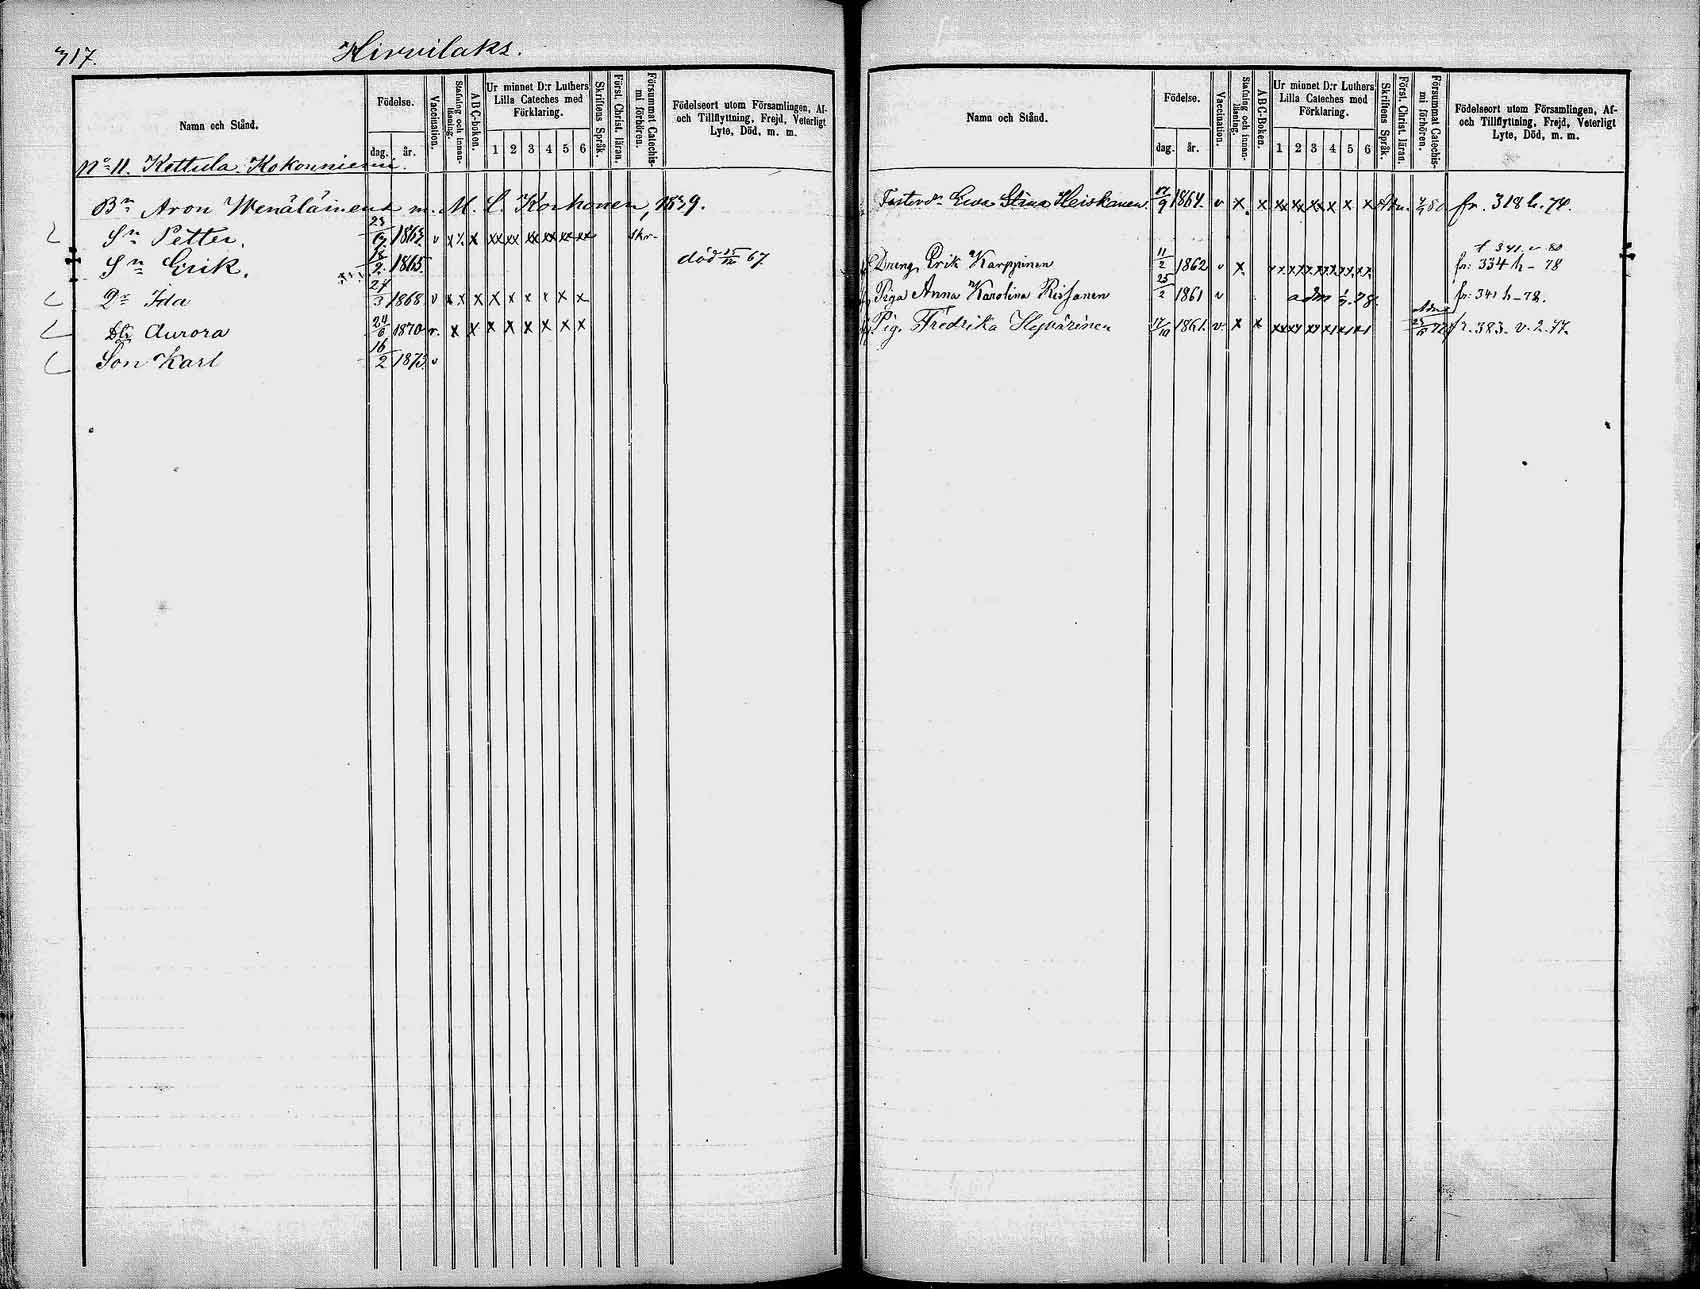 317.
Hirvilaks.
Namn och Stånd.
Födelse.
dag. år.
Vaccination.
Stafning och innanläsning.
A B C-boken.
Ur minnet D:r Luthers Lilla Cateches med Förklaring.
1 2 3 4 5 6
Skriftens Språk.
Först. Christ. läran.
Försummat Catechismi förhören.
Födelseort utom Församlingen, Af- och Tillflyttning, Frejd, Veterligt Lyte, Död, m. m.
No 11. Kettula Kokonniemi.
Bn Aron Wenäläinen m. M. C. Korhonen, 1539.
Sn Petter. 1862 v x x x xx xx xx xx xx xx skr.
Sn Erik. 18/2 1865. död 67
Dr Ida 27/3 1868 v x x x x x x x x
Dr Aurora 24/6 1870 v. x x x x x x x x
Son Karl 16/2 1873. v
Namn och Stånd.
Födelse.
dag. år.
Vaccination.
Stafning och innanläsning.
A B C-Boken.
Ur minnet D:r Luthers Lilla Cateches med Förklaring.
1 2 3 4 5 6
Skriftens Språk.
Först. Christ. läran.
Försummat Catechismi förhören.
Födelseort utom Församlingen, Af- och Tillflyttning, Frejd, Veterligt Lyte, Död, m. m.
Fosterdr Ewa Stina Heiskanen. 17/9 1864. v x x xx xx xx x x x Adm. fr. 318 h. 74.
t 341. v 80
Dreng Erik Karppinen 11/2 1862 v x fr. 334 h - 78
Piga Anna Karolina Reijonen 25/2 1861 v adm 78. fr. 341 h - 78.
Pig. Fredrika Hyvärinen 17/10 1861. v. x x Adm fr. 383. v. 2. 77.